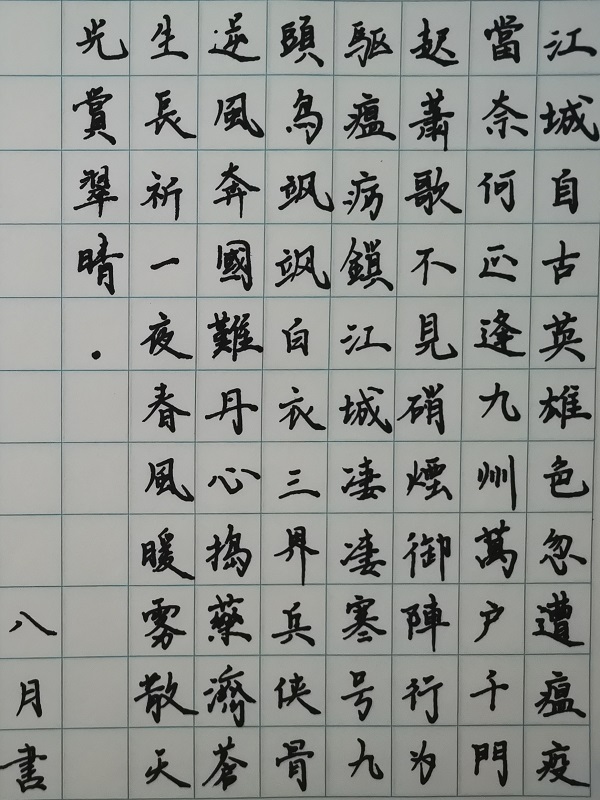 江城自古英雄色忽遭瘟疫
當奈何正逢九州萬户千門
起蕭歌不見硝煙御陣行为
驅瘟疠鎖江城凄凄寒号九
頭鳥飒飒白衣三界兵侠骨
逆風奔國難丹心搗藥濟蒼
生長祈一夜春風暖雾散天
光賞翠晴．
八月書